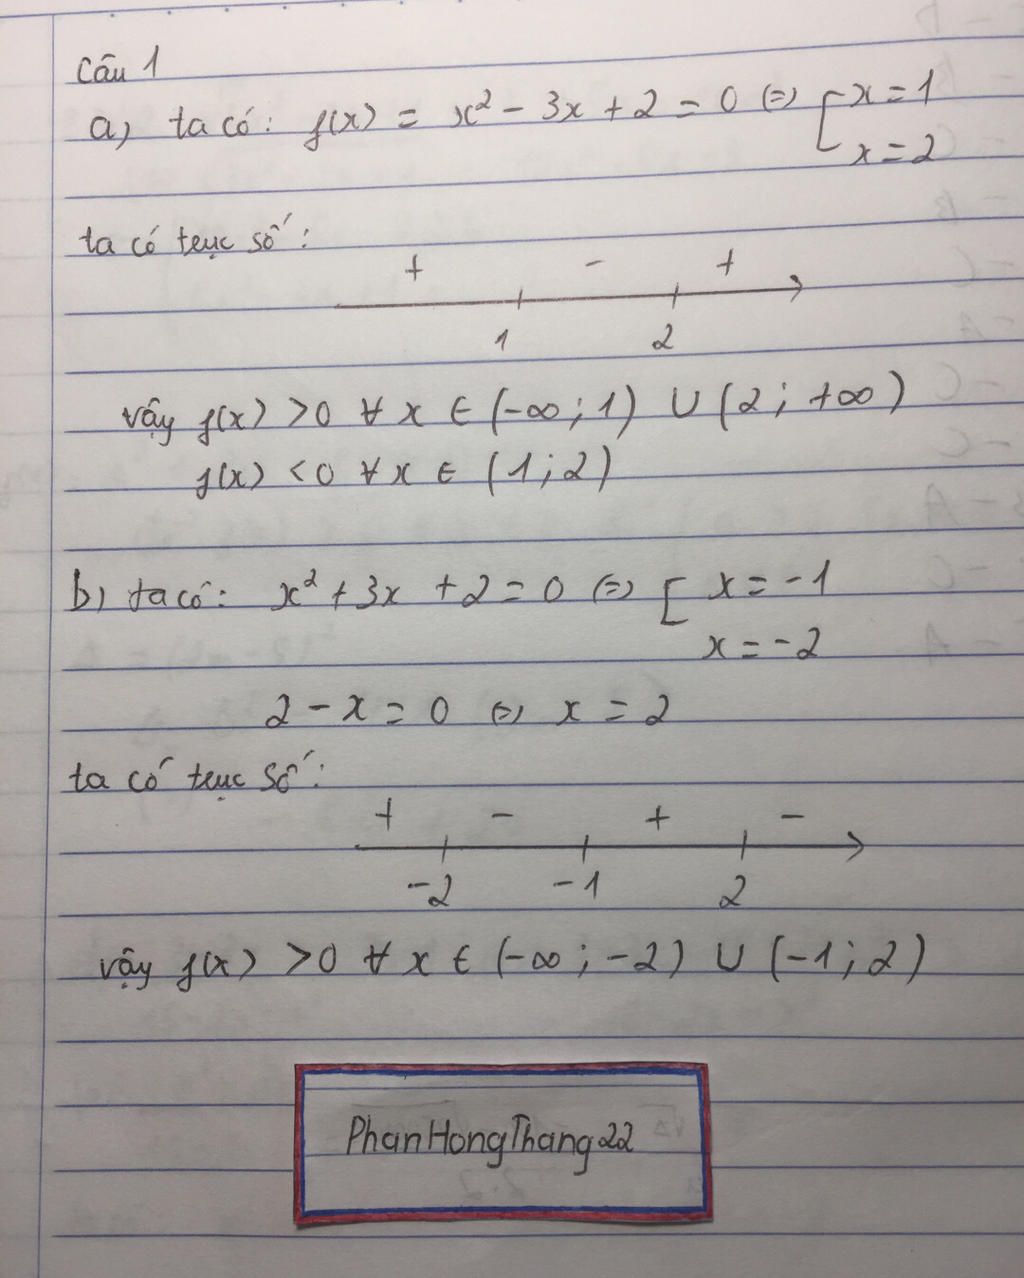 Câu 1
a, ta có: f(x) = x² - 3x + 2 = 0 (=) [ x = 1
x = 2
ta có trục số:
+ - +
1 2
vậy f(x) > 0 ∀ x ∈ (-∞; 1) ∪ (2; +∞)
f(x) < 0 ∀ x ∈ (1; 2)
b, ta có: x² + 3x + 2 = 0 (=) [ x = -1
x = -2
2 - x = 0 (=) x = 2
ta có trục số:
+ - + -
-2 -1 2
vậy f(x) > 0 ∀ x ∈ (-∞; -2) ∪ (-1; 2)
PhanHongThang22